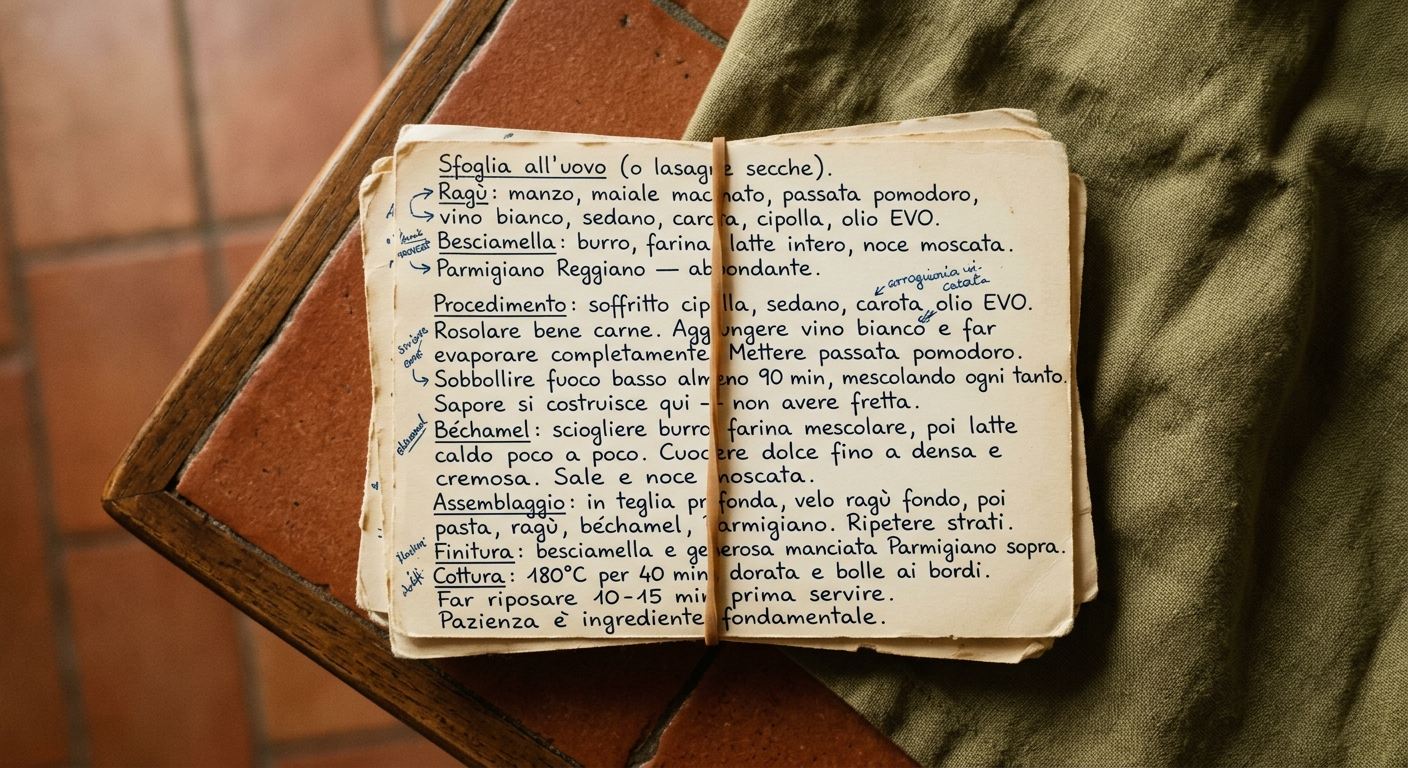 Sfoglia all'uovo (o lasagne secche).
Ragù: manzo, maiale macinato, passata pomodoro,
vino bianco, sedano, carota, cipolla, olio EVO.
Besciamella: burro, farina latte intero, noce moscata.
Parmigiano Reggiano — abbondante.
Procedimento: soffritto cipolla, sedano, carota, olio EVO.
Rosolare bene carne. Aggiungere vino bianco e far
evaporare completamente. Mettere passata pomodoro.
Sobbollire fuoco basso almeno 90 min, mescolando ogni tanto.
Sapore si costruisce qui — non avere fretta.
Béchamel: sciogliere burro farina mescolare, poi latte
caldo poco a poco. Cuocere dolce fino a densa e
cremosa. Sale e noce moscata.
Assemblaggio: in teglia profonda, velo ragù fondo, poi
pasta, ragù, béchamel, Parmigiano. Ripetere strati.
Finitura: besciamella e generosa manciata Parmigiano sopra.
Cottura: 180°C per 40 min, dorata e bolle ai bordi.
Far riposare 10-15 min prima servire.
Pazienza è ingrediente fondamentale.